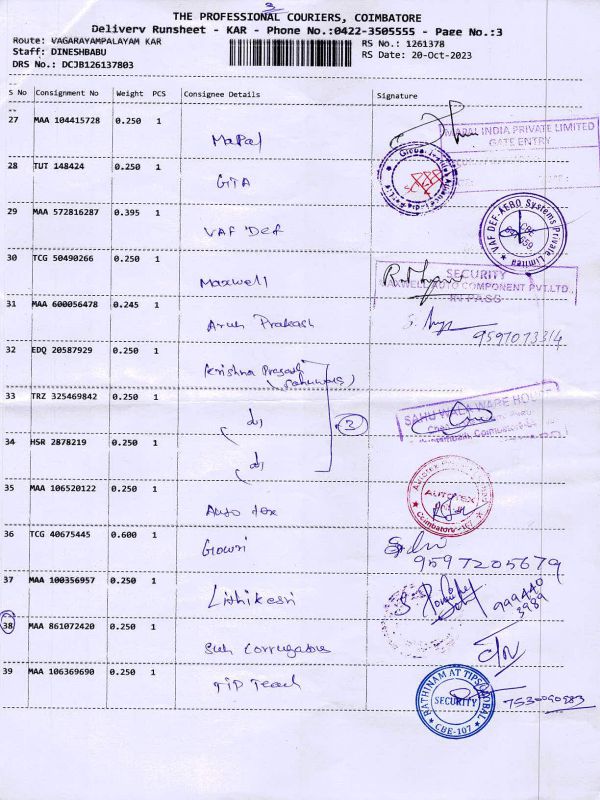 3
THE PROFESSIONAL COURIERS, COIMBATORE
Delivery Runsheet - KAR - Phone No.:0422-3505555 - Page No.:3
Route: VAGARAYAMPALAYAM KAR
RS No.: 1261378
Staff: DINESHBABU
RS Date: 20-Oct-2023
DRS No.: DCJB126137803
S No Consignment No Weight PCS Consignee Details Signature
27 MAA 104415728 0.250 1
MaPal
INDIA PRIVATE LIMITED
GATE ENTRY
28 TUT 148424 0.250 1
GITA
29 MAA 572816287 0.395 1
VAF Def
VAF DEF-AERO Systems Private Limited
30 TCG 50490266 0.250 1
Maxwell
SECURITY
AUTO COMPONENT PVT.LTD.,
IN PASS
31 MAA 600056478 0.245 1
Arun Prakash
32 EDQ 20587929 0.250 1
Krishna Prasath
33 TRZ 325469842 0.250 1
3
SAHU WALA WARE HOUSE
34 HSR 2878219 0.250 1
35 MAA 106520122 0.250 1
Auto tex
AUTOTEX
Coimbatore
36 TCG 40675445 0.600 1
Gowri
9597205679
37 MAA 100356957 0.250 1
Lithikesri
999440
3989
38 MAA 861072420 0.250 1
Corrugators
39 MAA 106369690 0.250 1
TIP Teach
RATHINAM AT TIPS GLOBAL
SECURITY
CBE-107